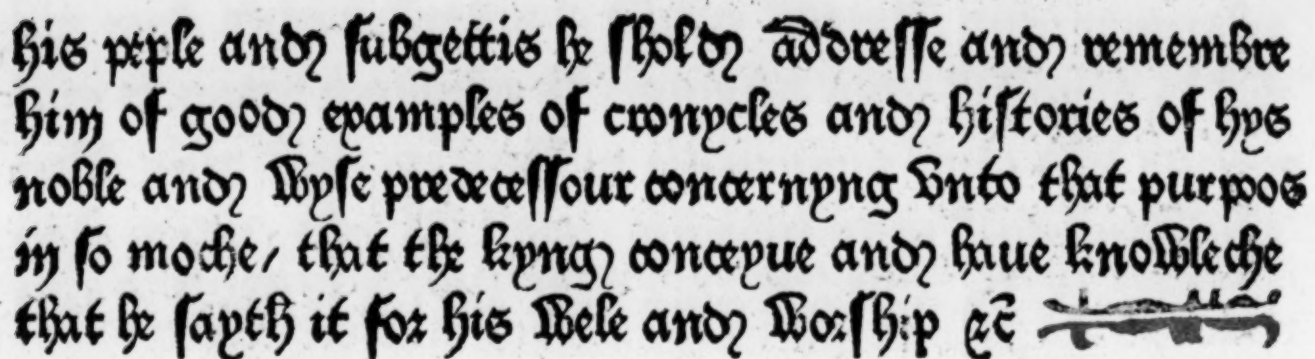 his peple and subgettis he shold addresse and remembre
him of good examples of cronycles and histories of hys
noble and wyse predecessour concernyng vnto that purpoos
in so moche / that the kyng conceyue and haue knowleche
that he sayth it for his wele and worship ⁊c̄